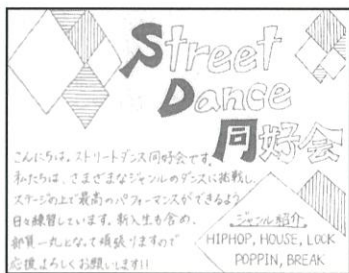 Street
Dance
同好会
こんにちは。ストリートダンス同好会です。
私たちは、さまざまなジャンルのダンスに挑戦し、
ステージの上で最高のパフォーマンスができるよう
日々練習しています。新入生も含め、
部員一丸となって頑張りますので
応援よろしくお願いします!!
ジャンル紹介
HIPHOP, HOUSE, LOCK
POPPIN, BREAK